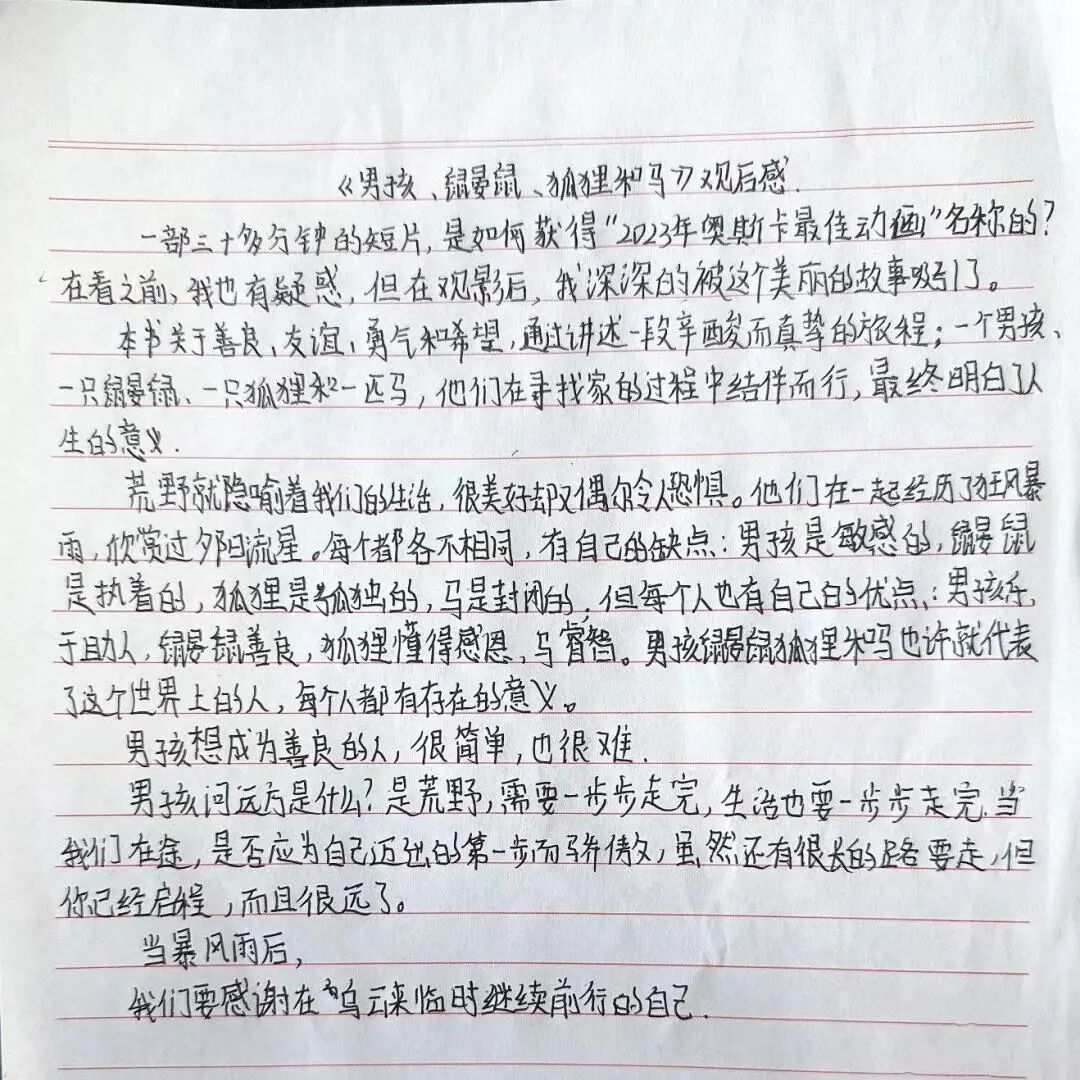 《男孩、鼹鼠、狐狸和马》观后感.
一部三十多分钟的短片,是如何获得“2023年奥斯卡最佳动画”名称的?
在看之前、我也有疑惑,但在观影后,我深深的被这个美丽的故事吸引了。
本书关于善良、友谊、勇气和希望,通过讲述一段辛酸而真挚的旅程;一个男孩、
一只鼹鼠、一只狐狸和一匹马,他们在寻找家的过程中结伴而行,最终明白了人
生的意义.
荒野就隐喻着我们的生活,很美好却又偶尔令人恐惧。他们在一起经历了狂风暴
雨,欣赏过夕阳流星。每个都各不相同,有自己的缺点:男孩是敏感的,鼹鼠
是执着的,狐狸是孤独的,马是封闭的.但每个人也有自己的优点:男孩乐
于助人,鼹鼠善良,狐狸懂得感恩,马睿智。男孩鼹鼠狐狸和马也许就代表
了这个世界上的人,每个人都有存在的意义。
男孩想成为善良的人,很简单,也很难.
男孩问远方是什么?是荒野,需要一步步走完,生活也要一步步走完.当
我们在途,是否应为自己迈出的第一步而骄傲,虽然还有很长的路要走,但
你已经启程,而且很远了。
当暴风雨后,
我们要感谢在乌云来临时继续前行的自己.